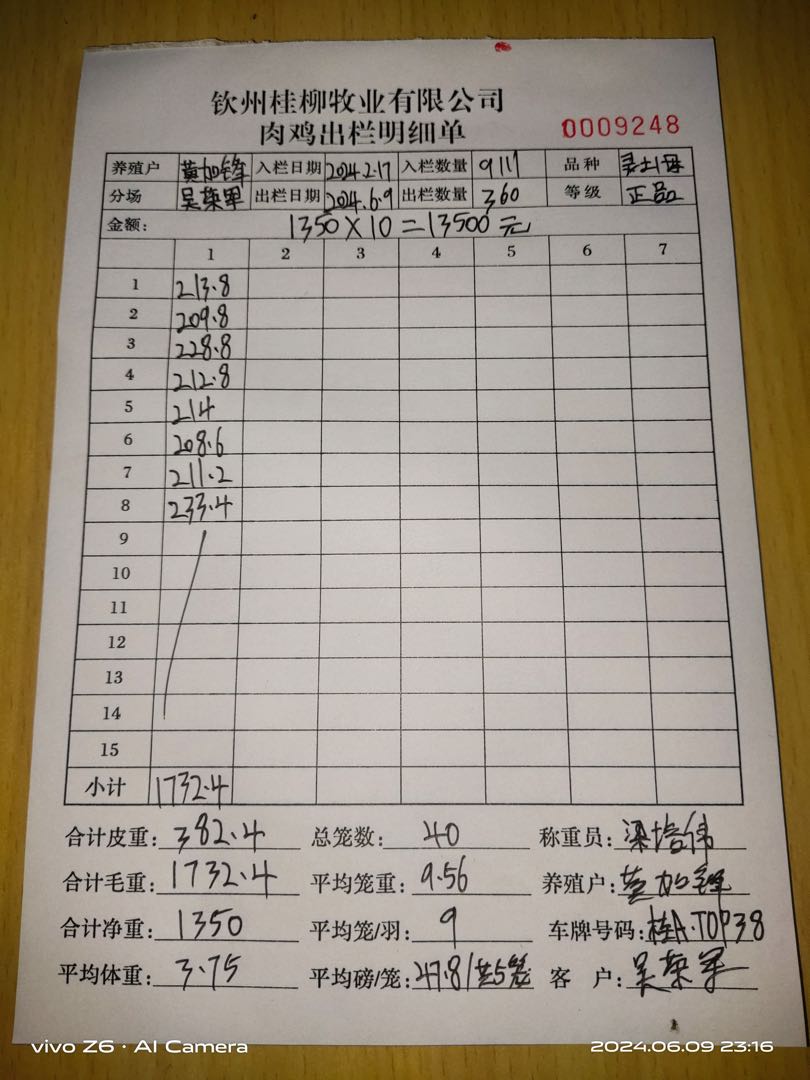 钦州桂柳牧业有限公司
肉鸡出栏明细单 0009248
养殖户 黄加锋 入栏日期 2024.2.17 入栏数量 9117 品种
分场 吴荣军 出栏日期 2024.6.9 出栏数量 360 等级 正品
金额: 1350×10=13500元
1 2 3 4 5 6 7
1 213.8
2 209.8
3 228.8
4 212.8
5 214
6 208.6
7 211.2
8 233.4
9
10
11
12
13
14
15
小计 1732.4
合计皮重: 382.4 总笼数: 40 称重员: 梁培伟
合计毛重: 1732.4 平均笼重: 9.56 养殖户: 黄加锋
合计净重: 1350 平均笼/羽: 9 车牌号码: 桂A·T0P38
平均体重: 3.75 平均磅/笼: 47.8/共5笼 客 户: 吴荣军
vivo Z6 · AI Camera 2024.06.09 23:16